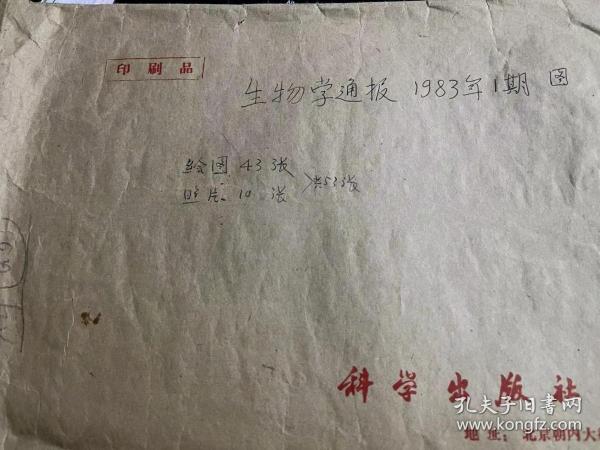 印刷品
生物学通报 1983年1期 图
绘图 43张
照片 10 张
共53张
科学出版社
地址：北京朝内大
孔夫子旧书网
www.kongfz.com